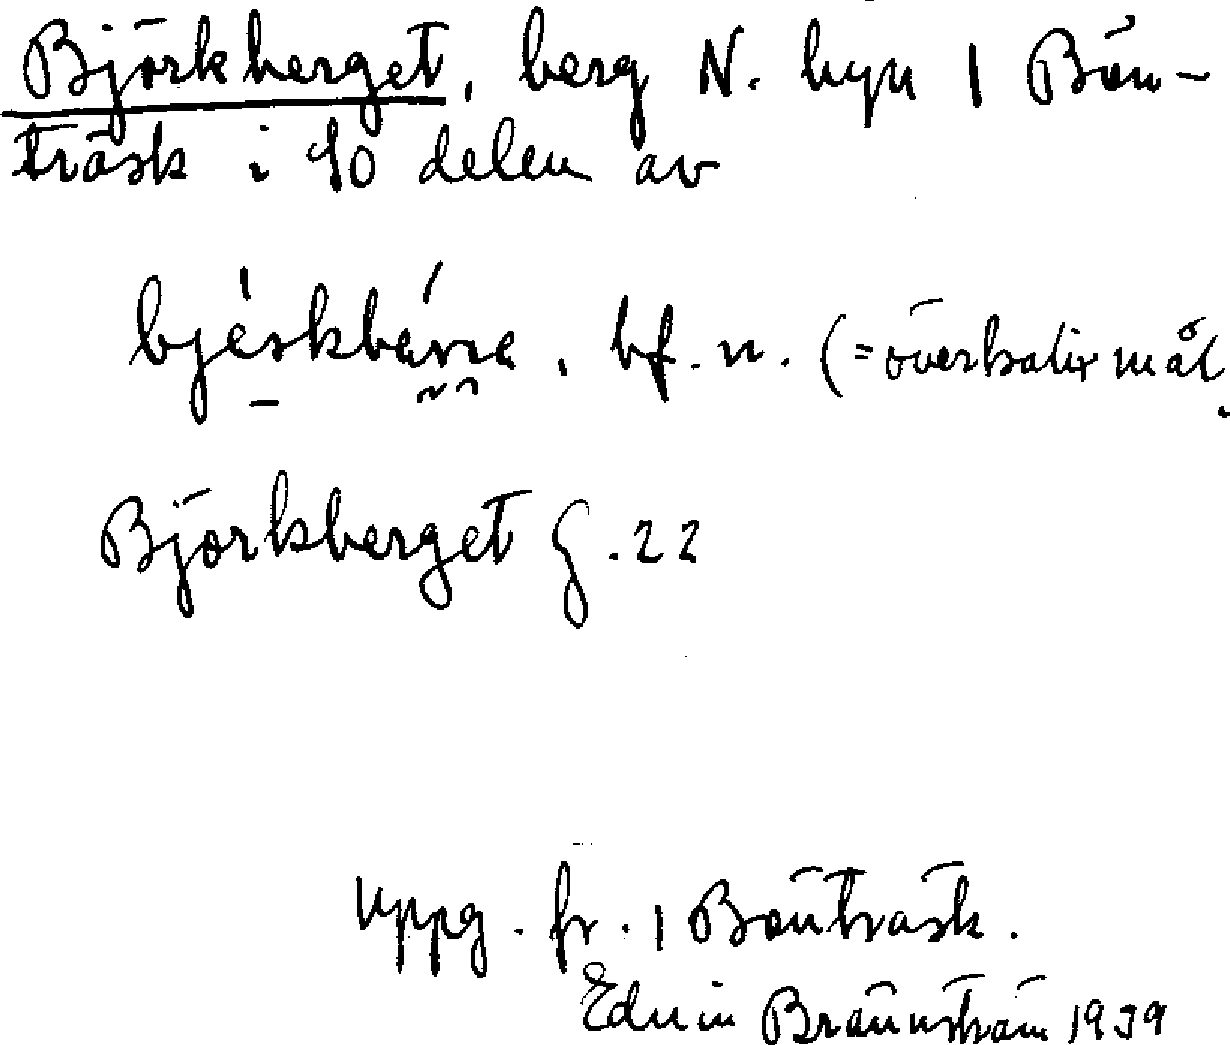 Björkberget, berg N. byn 1 Bön-
träsk i SO delen av
bjérkbérre, bf. n. (=överkalix mål.
Björkberget g. 22
uppg. fr. 1 Bönträsk.
Edvin Brännström 1939